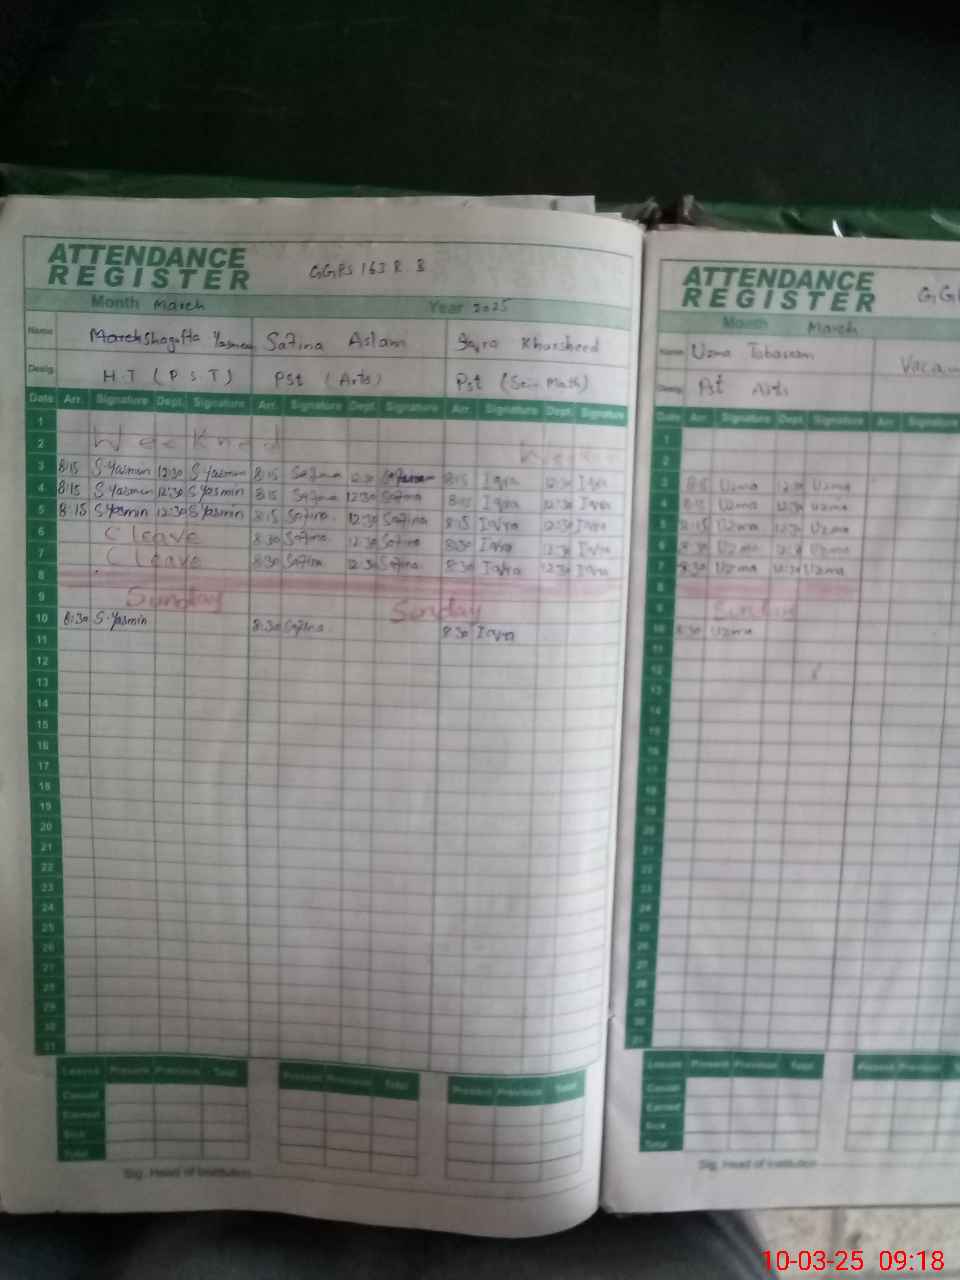 ATTENDANCE
REGISTER
GGPS 163 R.B
Month March Year 2025
Name Shagufta Yasmeen Safina Aslam Iqra Khursheed
Desig. H.T (P.S.T) Pst (Arts) Pst (Sci-Math)
Date Arr. Signature Dept. Signature Arr. Signature Dept. Signature Arr. Signature Dept. Signature
1
2 Weekned
3 8:15 S.Yasmin 12:30 S.Yasmin 8:15 Safina 12:30 8:15 Iqra 12:30 Iqra
4 8:15 S.Yasmin 12:30 S.Yasmin 8:15 Safina 12:30 Safina 8:15 Iqra 12:30 Iqra
5 8:15 S.Yasmin 12:30 S.Yasmin 8:15 Safina 12:30 Safina 8:15 Iqra 12:30 Iqra
6 C leave 8:30 Safina 12:30 Safina 8:30 Iqra 12:30 Iqra
7 C leave 8:30 Safina 12:30 Safina 8:30 Iqra 12:30 Iqra
8
9 Sunday Sunday
10 8:30 S.Yasmin 8:30 Safina 8:30 Iqra
11
12
13
14
15
16
17
18
19
20
21
22
23
24
25
26
27
28
29
30
31
Leaves Present Previous Total Present Previous Total Present Previous Total
Casual
Earned
Sick
Total
Sig. Head of Institution
ATTENDANCE
REGISTER
Month March
Name Uzma Tabassam
Desig. Pst Arts
Date Arr. Signature Dept. Signature Arr. Signature
1
2
3 8:15 Uzma 12:30 Uzma
4 8:15 Uzma 12:30 Uzma
5 8:15 Uzma 12:30 Uzma
6 8:30 Uzma 12:30 Uzma
7 8:30 Uzma 12:30 Uzma
8
9 Sunday
10 8:30 Uzma
11
12
13
14
15
16
17
18
19
20
21
22
23
24
25
26
27
28
29
30
31
Leaves Present Previous Total Present Previous
Casual
Earned
Sick
Total
Sig. Head of Institution
10-03-25 09:18